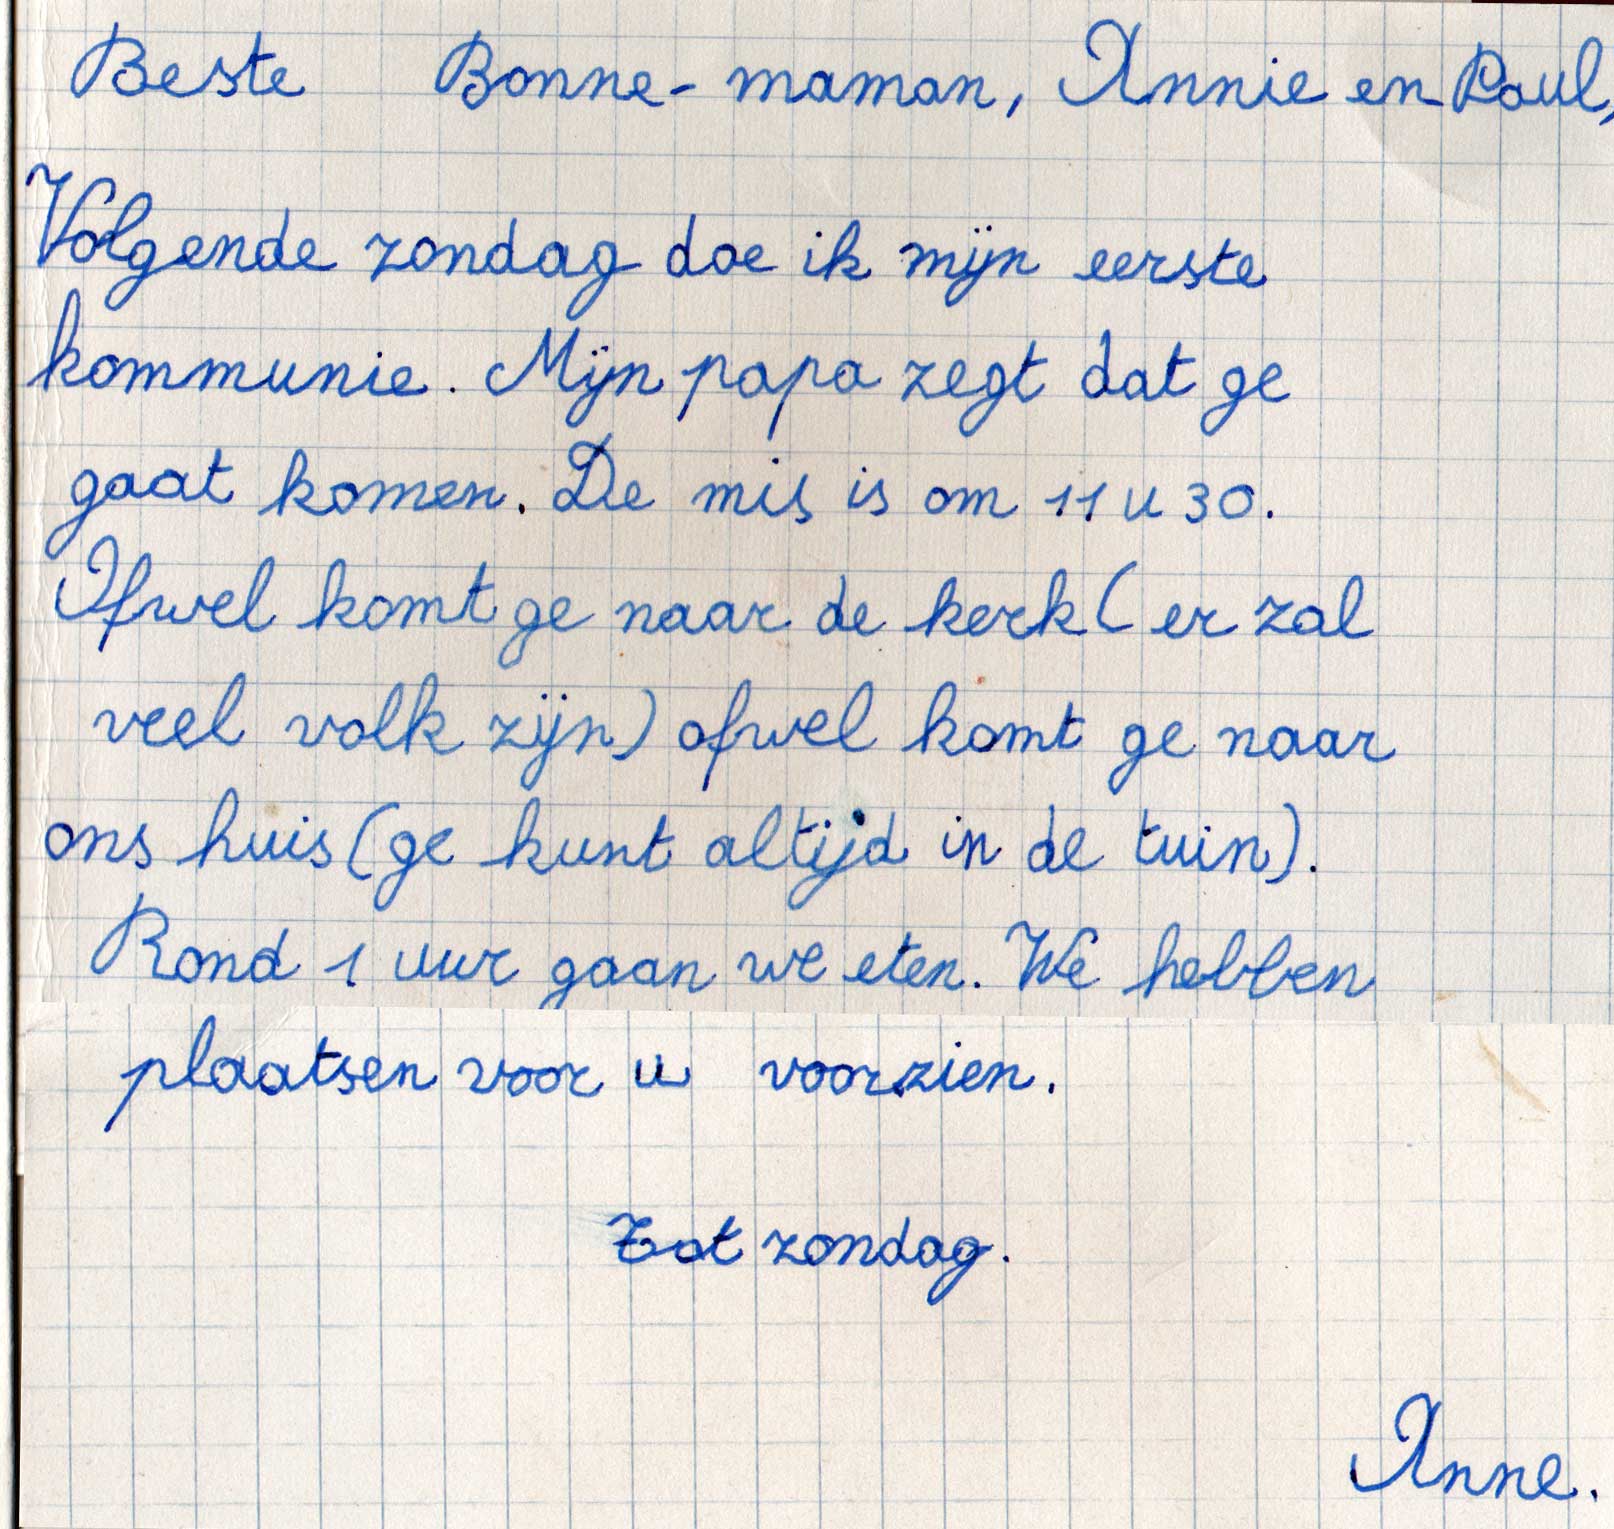 Beste Bonne-maman, Annie en Paul,
Volgende zondag doe ik mijn eerste
kommunie. Mijn papa zegt dat ge
gaat komen. De mis is om 11 u 30.
Ofwel komt ge naar de kerk (er zal
veel volk zijn) ofwel komt ge naar
ons huis (ge kunt altijd in de tuin).
Rond 1 uur gaan we eten. We hebben
plaatsen voor u voorzien.
Tot zondag.
Anne.